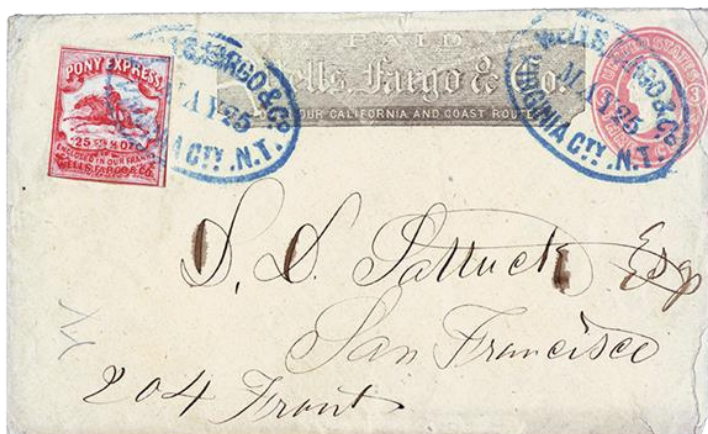 PONY EXPRESS
25 CTS ½ OZ
ENCLOSED IN OUR FRANKS
WELLS, FARGO & CO.
WELLS, FARGO & Co
MAY 25
VIRGINIA CTY. N.T.
PAID
Wells, Fargo & Co.
OUR CALIFORNIA AND COAST ROUTES
WELLS, FARGO & Co
MAY 25
VIRGINIA CTY. N.T.
UNITED STATES
3
Esq
San Francisco
204 Front